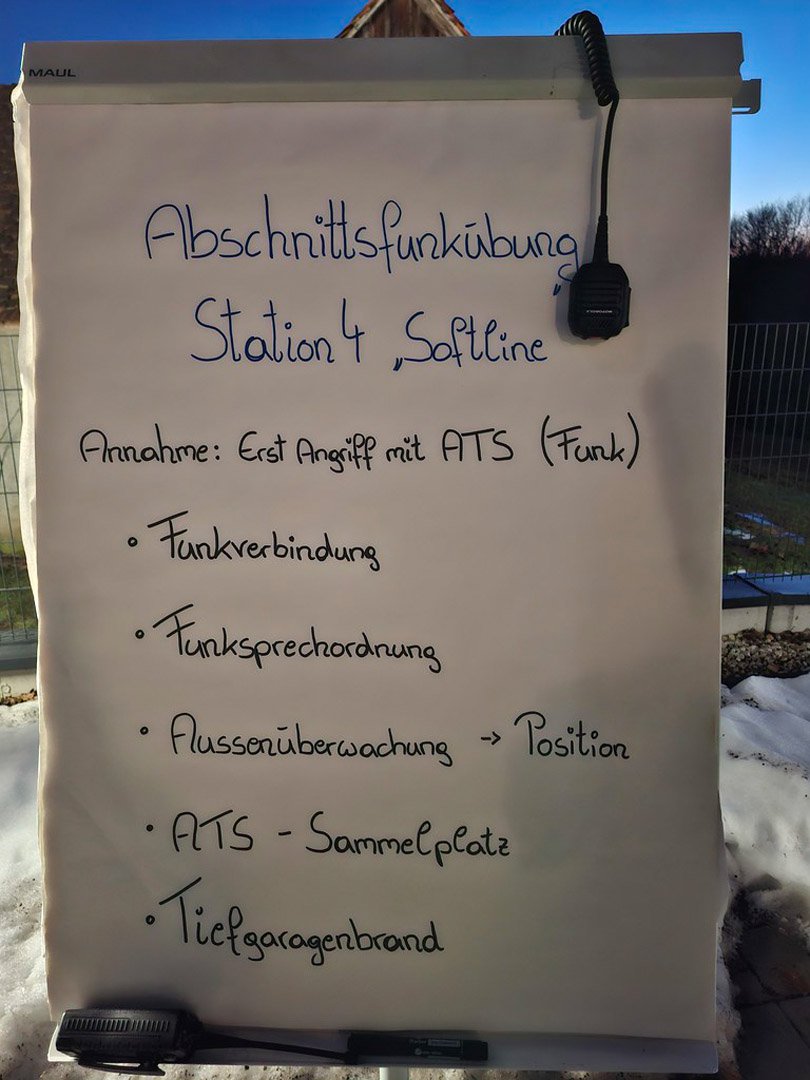 MAUL
Abschnittsfunkübung
Station 4 „Softline“
Annahme: Erst Angriff mit ATS (Funk)
• Funkverbindung
• Funksprechordnung
• Aussenüberwachung → Position
• ATS - Sammelplatz
• Tiefgaragenbrand